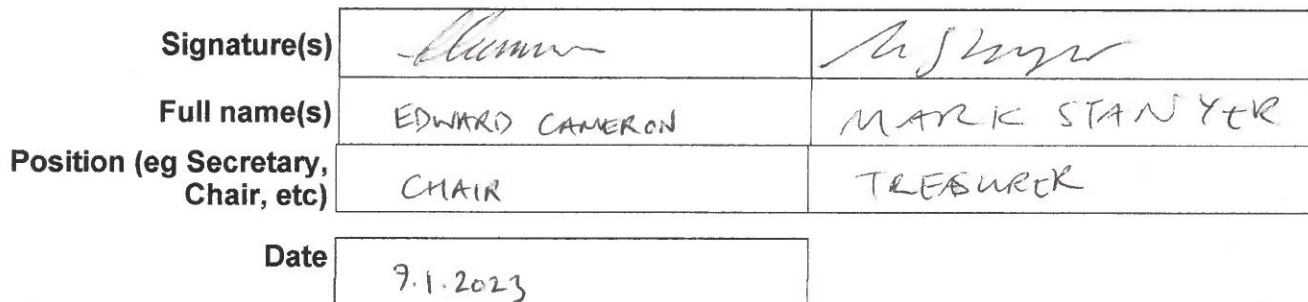 Signature(s)
Full name(s) EDWARD CAMERON MARK STANYER
Position (eg Secretary,
Chair, etc) CHAIR TREASURER
Date 9.1.2023